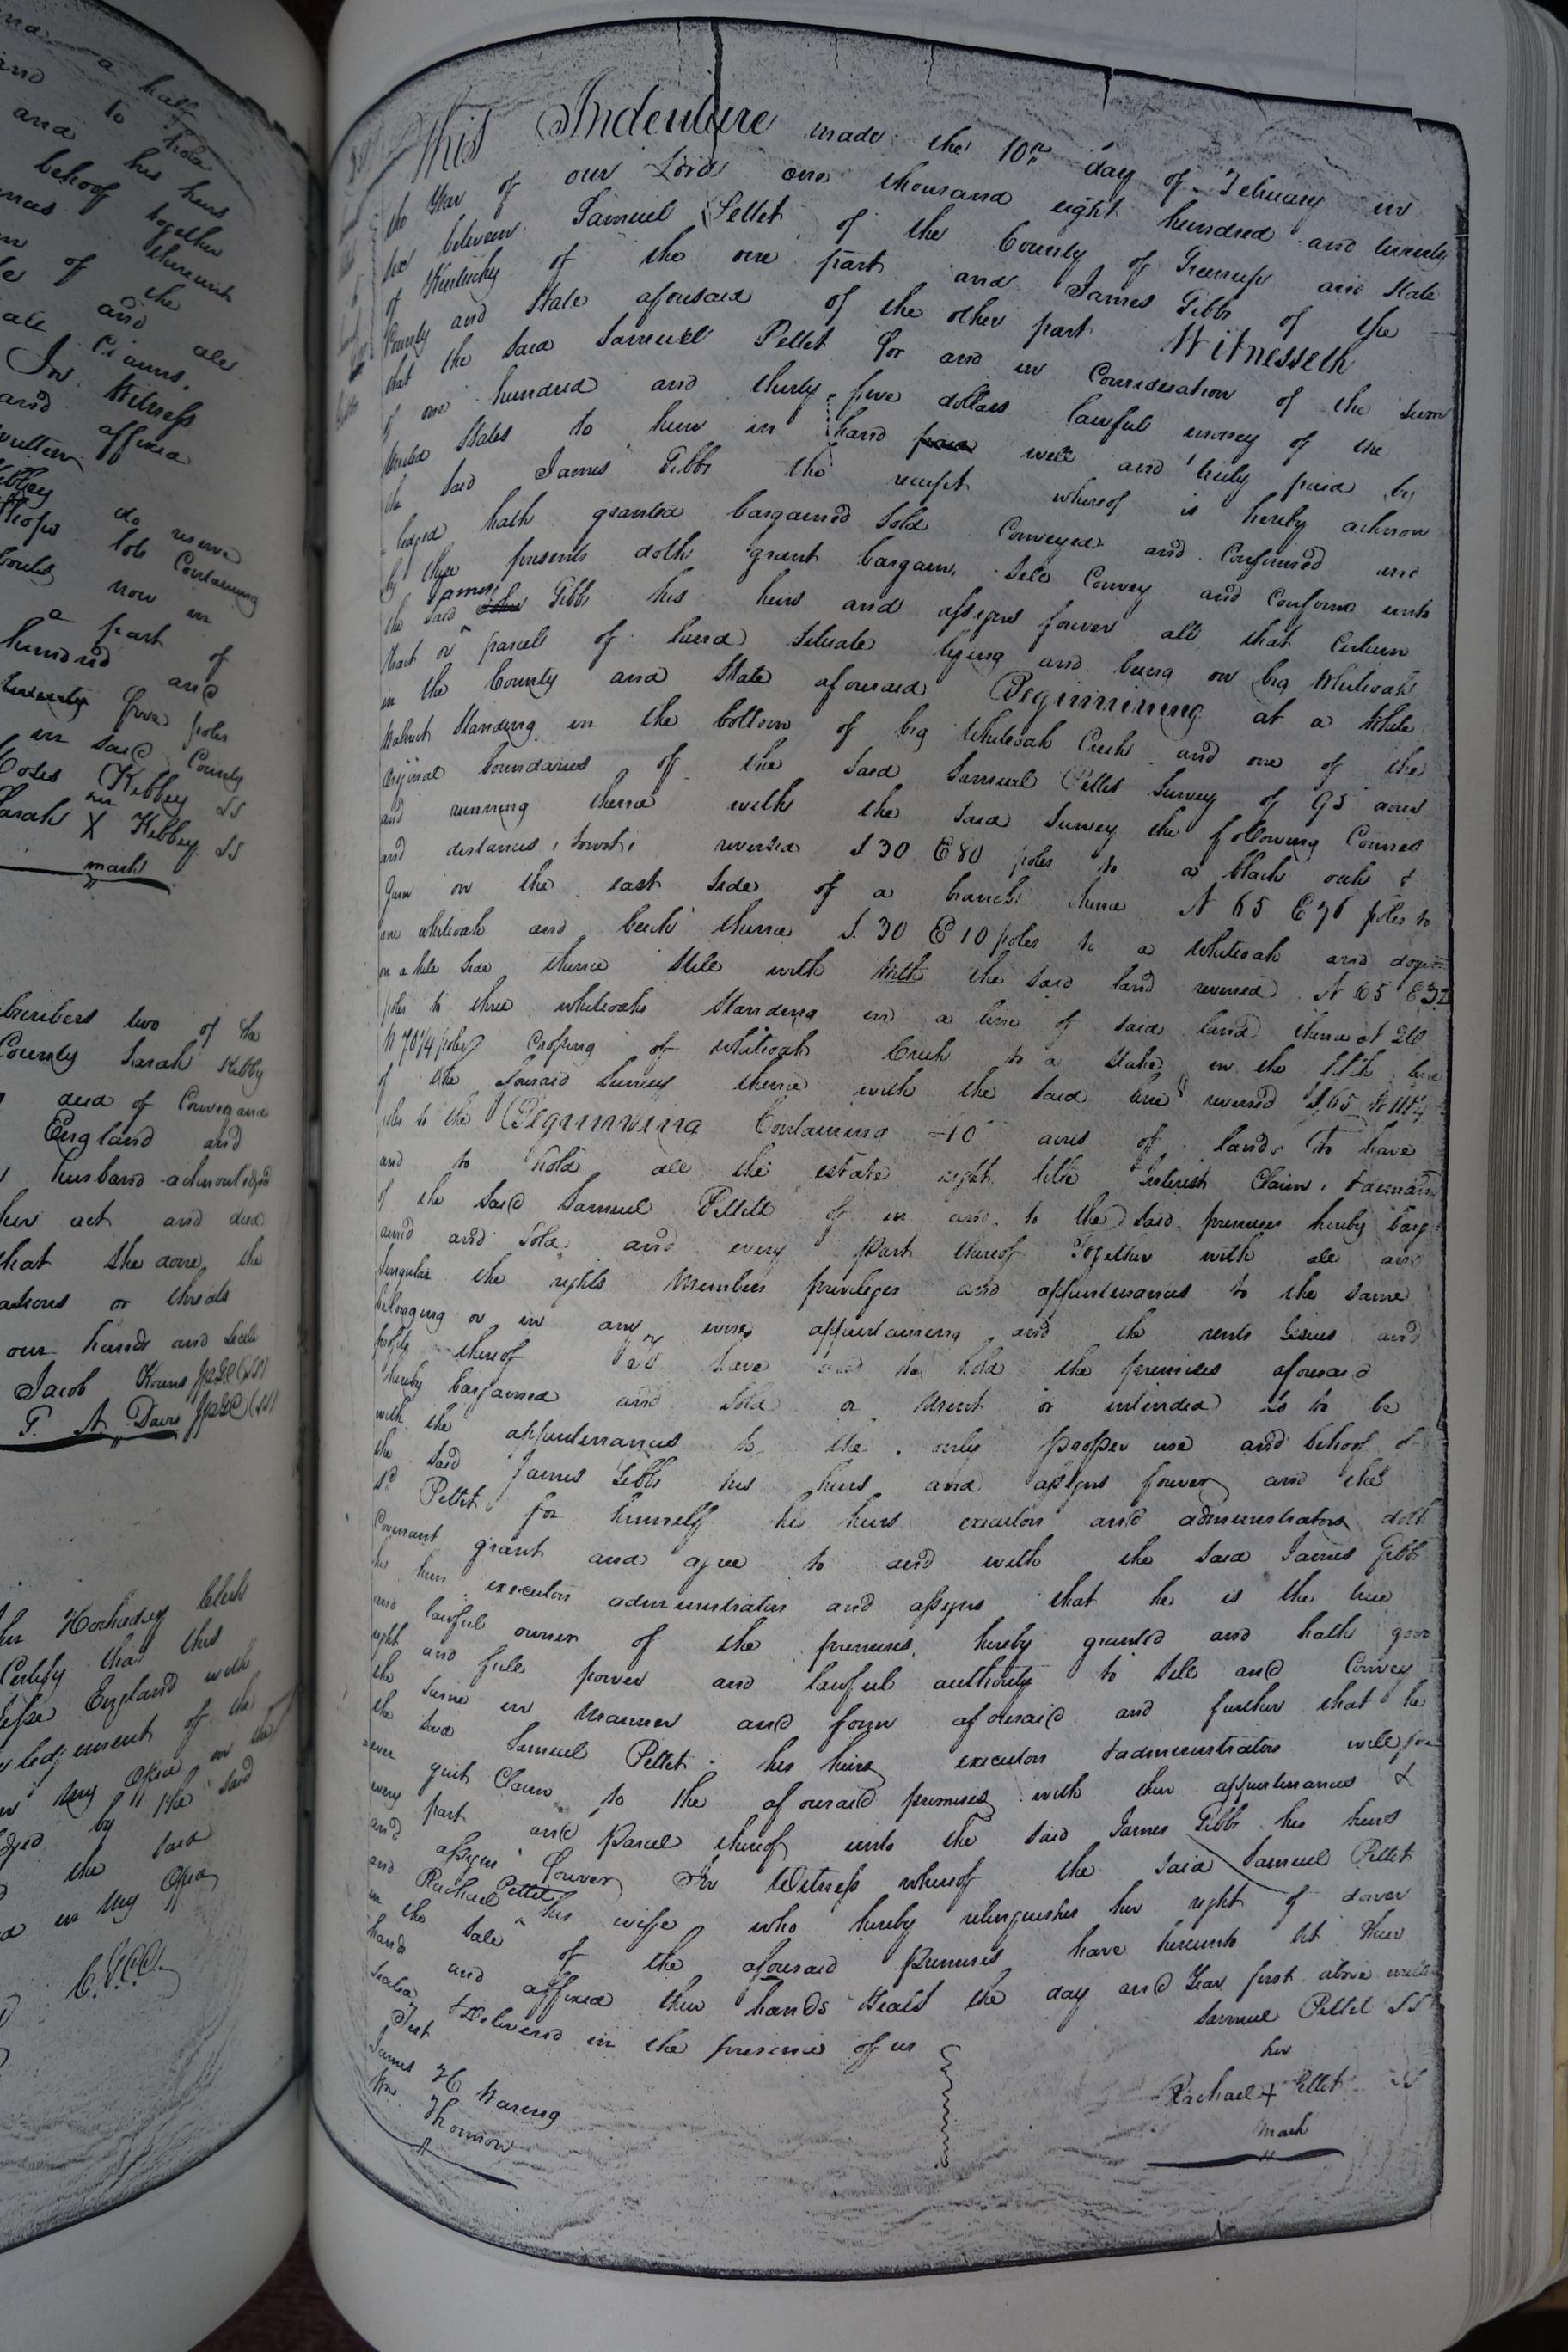 a half
and to hold
and his heirs
behoof together
thereunto
of the
and all
Claims.
In Witness
and affixed
written
Kibbey
do reserve
lots Containing
now in
a part of
hundred and
twenty four poles
in said County
Moses Kibbey SS
her
Sarah X Kibbey SS
mark
subscribers two of the
County Sarah Kibby
deed of Conveyance
England and
husband acknowledged
her act and deed
that she done the
or threats
our hands and seals
Jacob Kouns JPGC (SS)
T. A. Davis JPGC (SS)
Hockaday Clerk
Certify that this
England with
of the
my office on the
by the said
the said
in my Office
C.G.C.C.
This Indenture made the 10th day of February in
the Year of our Lord one thousand eight hundred and twenty
six between Samuel Pellet of the County of Greenup and State
of Kentucky of the one part and James Gibbs of the
County and State aforesaid of the other part Witnesseth
that the said Samuel Pellet for and in Consideration of the sum
of one hundred and thirty five dollars lawful money of the
United States to him in hand paid well and truly paid by
the said James Gibbs the receipt whereof is hereby acknow
ledged hath granted bargained sold Conveyed and Confirmed and
by these presents doth grant bargain, sell Convey and Confirm unto
James
the said John Gibbs his heirs and assigns forever all that Certain
tract or parcel of land situate lying and being on big Whiteoak
in the County and State aforesaid Beginning at a White
Walnut standing in the bottom of big Whiteoak Creek and one of the
original boundaries of the said Samuel Pellet Survey of 95 acres
and running thence with the said Survey the following Courses
and distances, towit: reversed S 30 E 80 poles to a black oak &
Gum on the east side of a branch thence N 65 E 76 poles to
one whiteoak and beech thence S. 30 E 10 poles to a Whiteoak and dogw
on a hill side thence still with with the said land reversed N 65 E 32
poles to three whiteoaks standing in a line of said land thence N 20
W 70 1/4 poles Crossing of whiteoak Creek to a stake in the fifth line
of the aforesaid Survey thence with the said line reversed S 65 W 111 1/4
poles to the Beginning Containing 40 acres of land, To have
and to hold all the estate right title Interest Claim, & demand
of the said Samuel Pellett of in and to the said premises hereby barg
ained and Sold and every part thereof Together with all and
singular the rights Members privileges and appurtenances to the same
belonging or in any wise appertaining and the rents Issues and
profits thereof To have and to hold the premises aforesaid
hereby bargained and Sold or Meant or intended so to be
with the appurtenances to the only propper use and behoof of
the said James Gibbs his heirs and assigns forever and the
sd Pellet for himself his heirs executors and administrators doth
Covenant grant and agree to and with the said James Gibbs
his heirs executors administrators and assigns that he is the true
and lawful owner of the premises, hereby granted and hath good
right and full power and lawful authority to sell and Convey
the same in Manner and form aforesaid and further that he
the said Samuel Pellet, his heirs executors & administrators will for
ever quit Claim to the aforesaid premises with their appurtenances &
every part and Parcel thereof unto the said James Gibbs his heirs
and assigns forever In Witness whereof the said Samuel Pellet
and Rachael Pellet his wife who hereby relinquishes her right of dower
in the sale of the aforesaid Premises have hereunto set their
hands and affixed their hands & seals the day and Year first above written
Sealed & Delivered in the presence of us
Samuel Pellet SS
Test
her
James H Waring
Rachael + Pellet SS
Wm. Thomson
mark